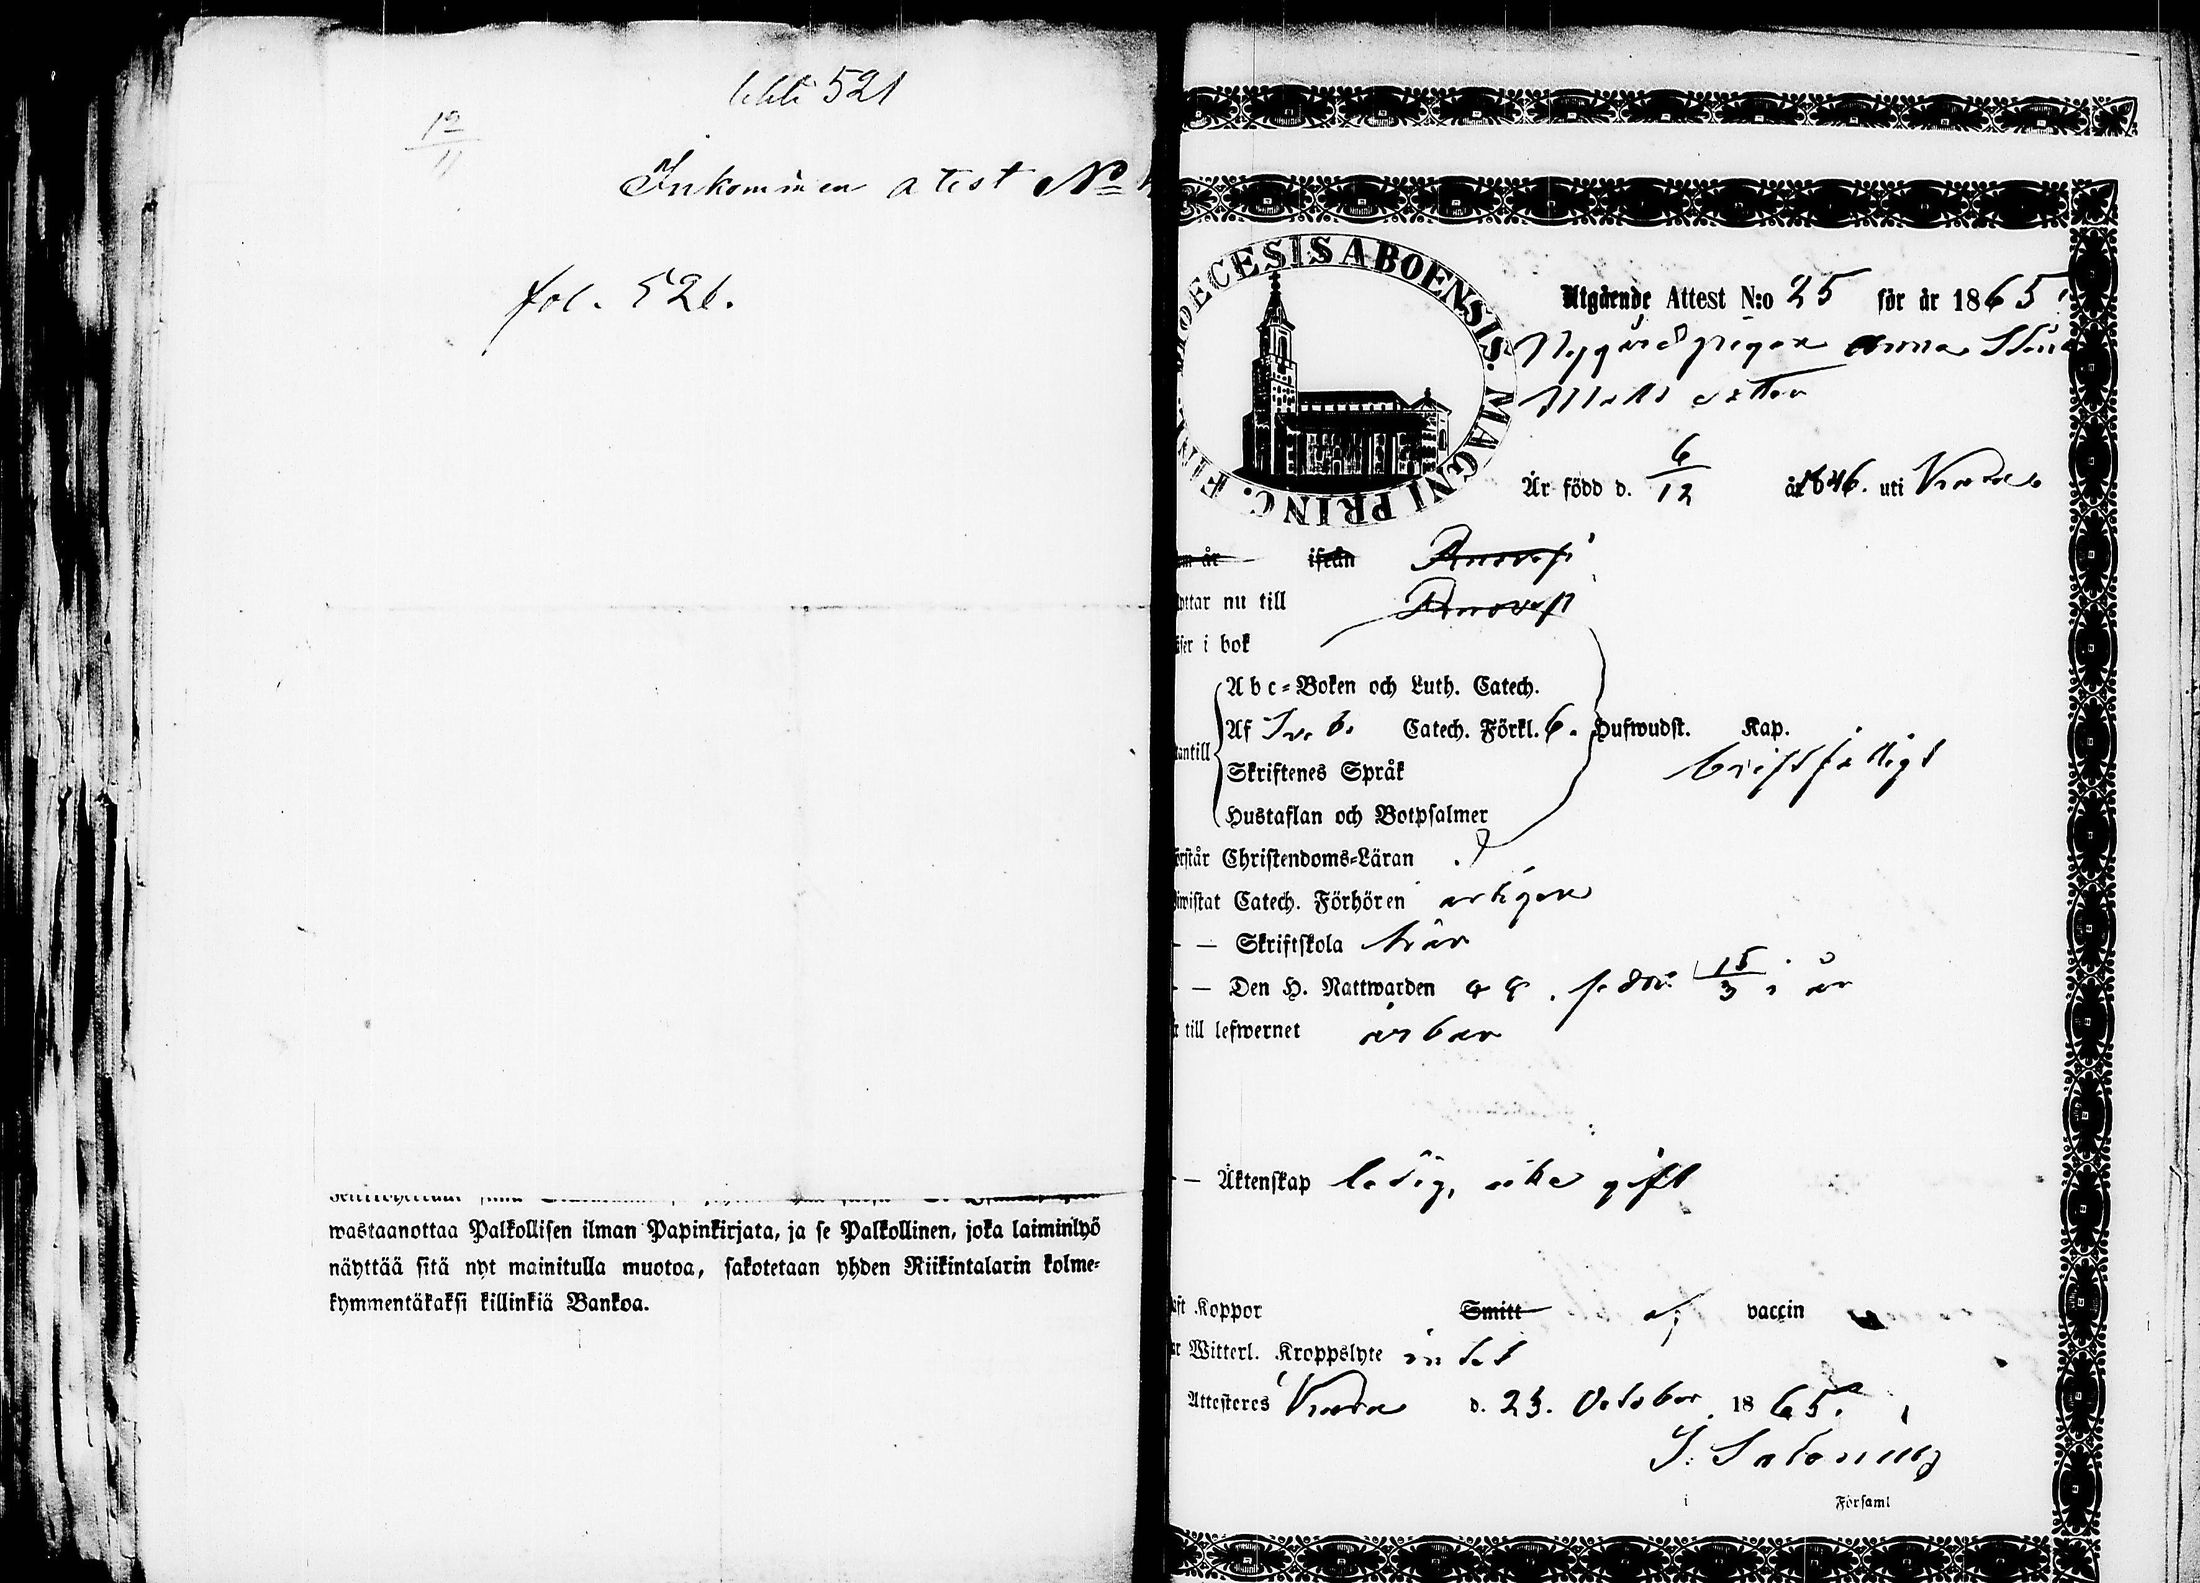 lehti 521
12/11
Inkommen atest No
fol. 526.
wastaanottaa Palkollisen ilman Papinkirjata, ja se Palkollinen, joka laiminlyö
näyttää sitä nyt mainitulla muotoa, sakotetaan yhden Riikintalarin kolme-
kymmentäkaksi killinkiä Bankoa.
DIOECESIS ABOENSIS. MAGNI PRINC. FINL.
Utgående Attest N:o 25 för år 1865.
pigan Anna Stina
Matts dotter
Är född d. 6/12 år 1846. uti
om år ifrån
yttar nu till
äser i bok
Abc-Boken och Luth. Catech.
Af Catech. Förkl. 6. Hufwudst. Kap.
antill
Skriftenes Språk bristfälligt
Hustaflan och Botpsalmer
örstår Christendoms-Läran
iwistat Catech. Förhören artigen
— — Skriftskola här
— — Den H. Nattwarden 15/3 i år
r till lefwernet ärbar
— — Äktenskap ledig, icke gift
aft Koppor Smitt ej vaccin
ar Witterl. Kroppslyte intet
Attesteres d. 23. October 1865.
i Församl